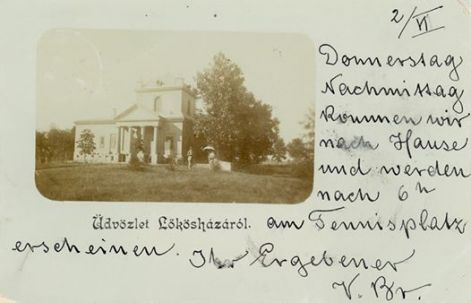 2/VI
Donnerstag
Nachmittag
kommen wir
nach Hause
und werden
nach 6h
Üdvözlet Lőkösházáról. am Tennisplatz
erscheinen. Ihr Ergebener
V. Br.